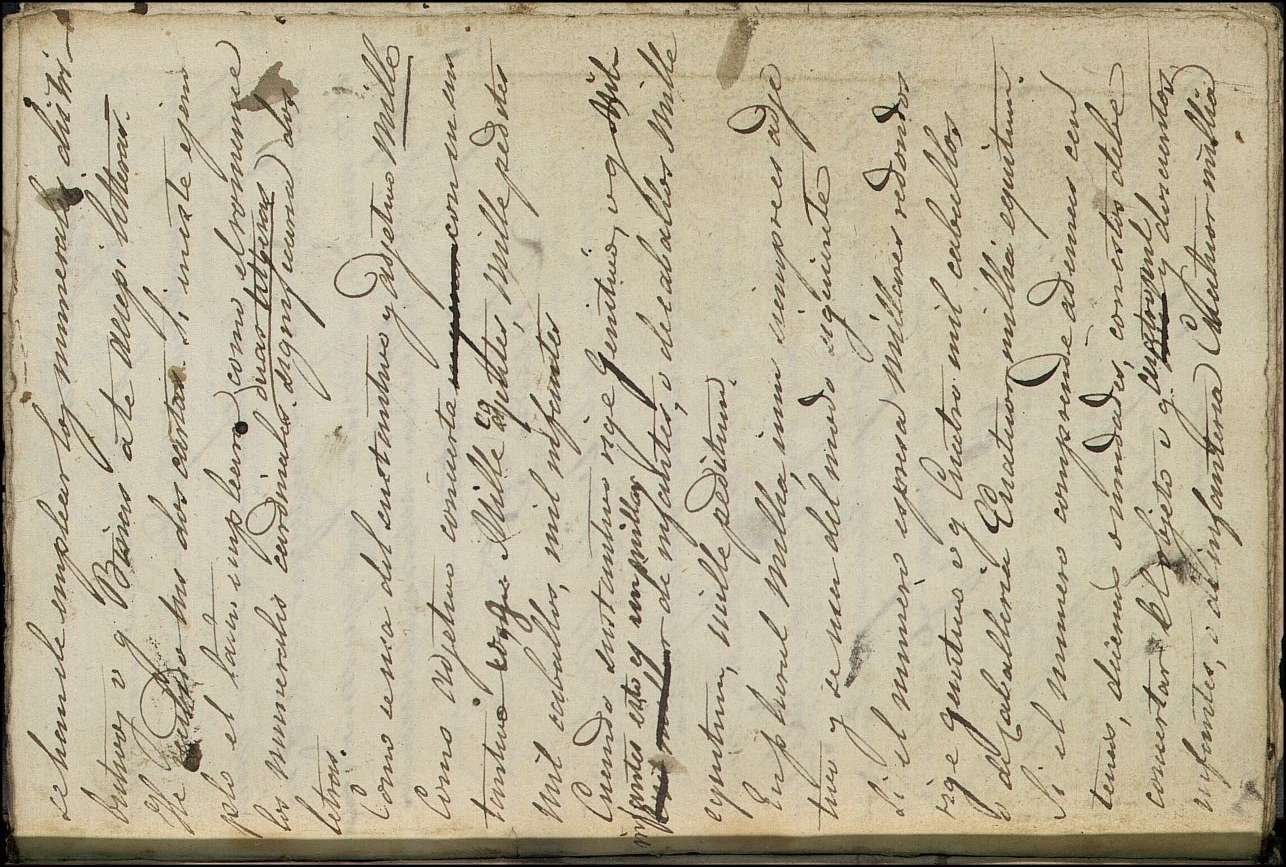 se han de emplear los numerales distri-
butivos v g Binas a te accepi litteras.
He recibido tus dos cartas. Si en este ejem
plo el latino emplear como el romance
los numerales cardinales duas litteras significaria dos
letras.
Como se usa del sustantivo y adjetivo Mille
Como adjetivo concierta con un sus
tantivo v g Mille equites, mille pedites
mil caballos, mil infantes
Cuando sustantivo rige genitivo, v g Mil
infantes esto es un millar de infantes, o de caballos Mille
equitum, mille peditum.
En plural Millia, ium siempre es adje
tivo y se usa del modo siguiente
Si el numero espresa Millares redondos
rige genitivo v g Cuatro mil caballos
o de Caballeria Quatuor millia equitum
Si el numero comprende ademas cen
tenas, decenas o unidades, entonces debe
concertar el objeto v g cuatro mil y doscientos
infantes, o de infanteria Quatuor millia